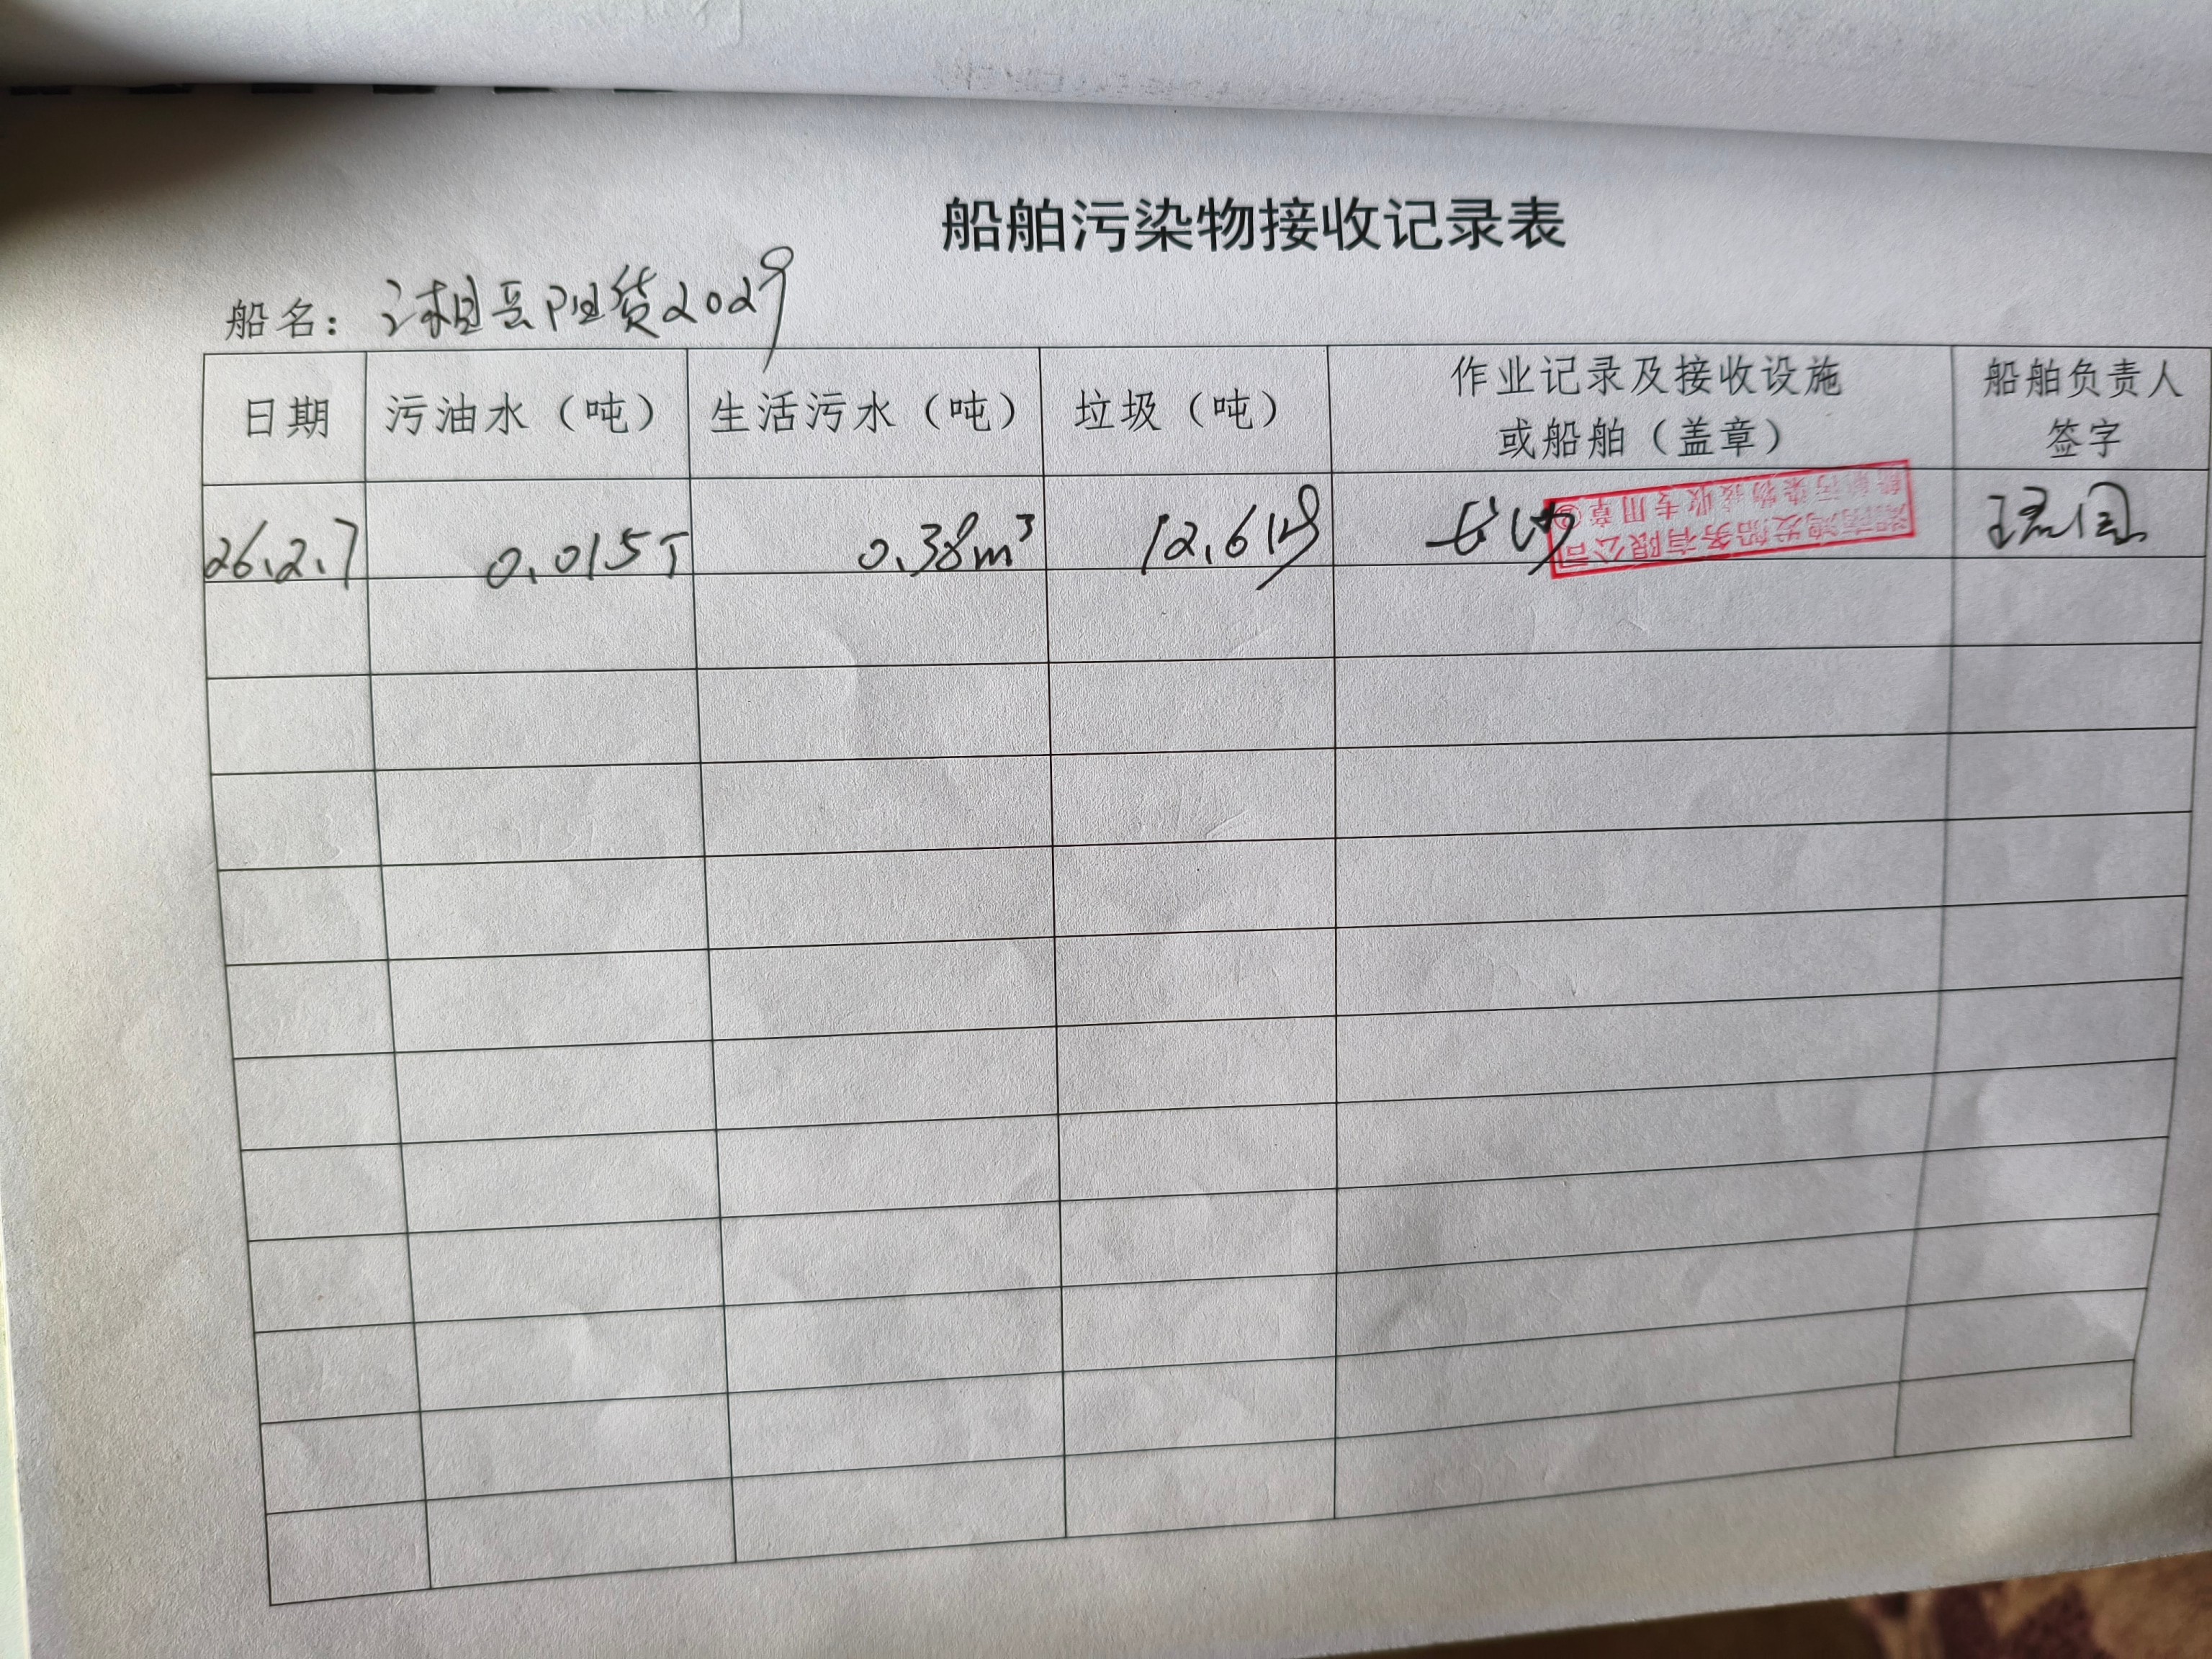 船舶污染物接收记录表
船名：湘岳阳货2029
日期 污油水（吨） 生活污水（吨） 垃圾（吨） 作业记录及接收设施或船舶（盖章） 船舶负责人签字
26.2.7 0.015T 0.38m³ 12.6kg
湖南鸿发船务有限公司
船舶污染物接收专用章